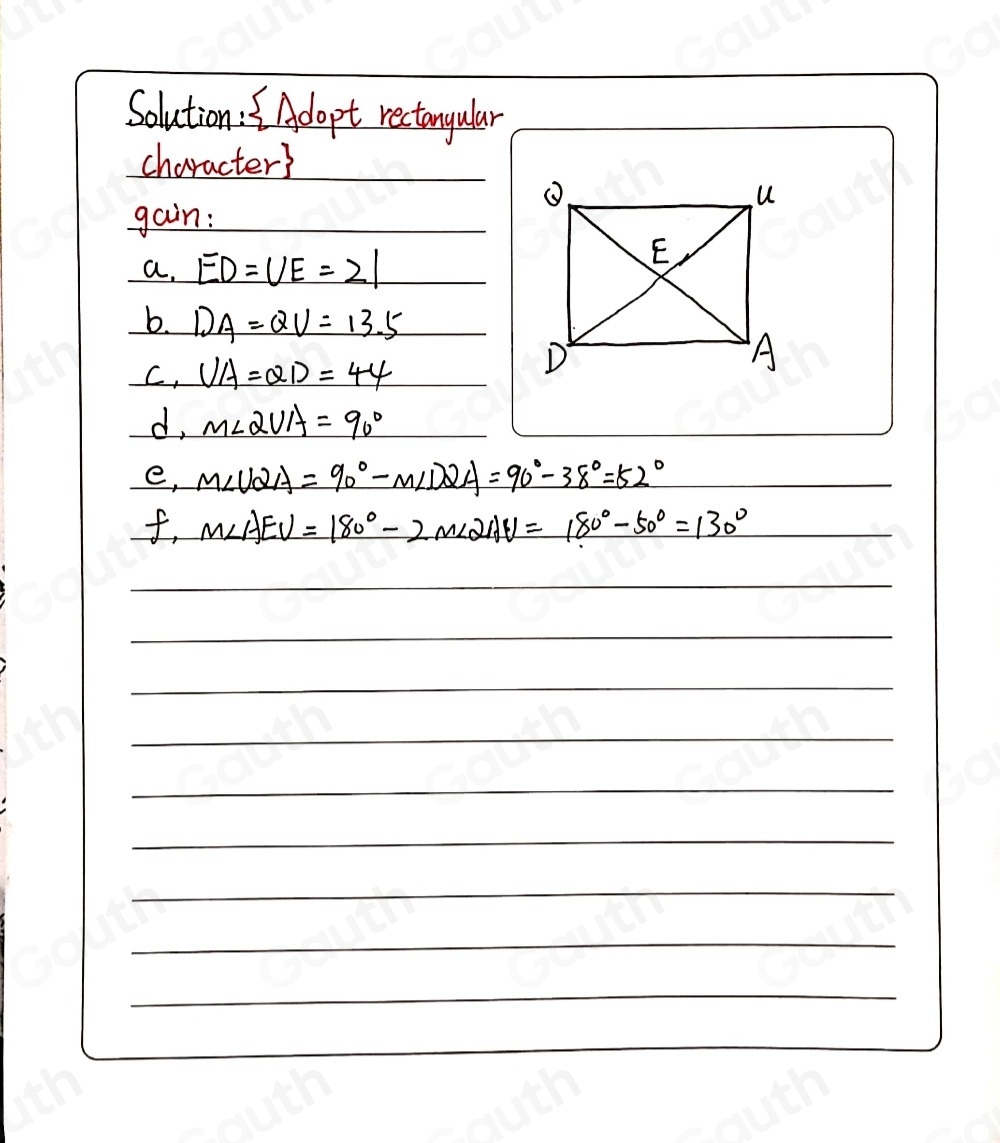 Solution:{Adopt rectangular
character}
gain:
a. ED=UE=21
b. DA=QU=13.5
c, UA=QD=44
d, m∠QUA=90°
e, m∠UQA=90°-m∠DQA=90°-38°=52°
f, m∠AEU=180°-2m∠QAU=180°-50°=130°
Q
U
E
D
A
Gauth